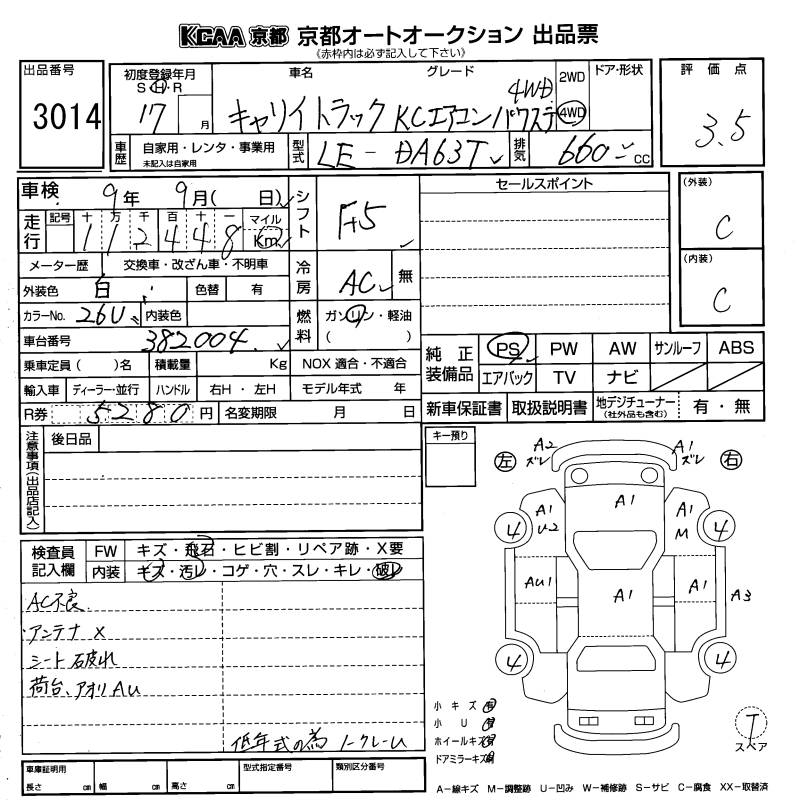 KCAA 京都 京都オートオークション 出品票
《赤枠内は必ず記入して下さい》
出品番号
3014
初度登録年月
S・H・R
17 月
車名
グレード
キャリイトラック KCエアコンパワステ 4WD
2WD
4WD
ドア・形状
評価点
3.5
車歴
自家用・レンタ・事業用
未記入は自家用
型式
LE-DA63T
排気
660 cc
車検 9年 9月( 日)
走行
記号 十 万 千 百 十 一 マイル
1 1 2 4 4 8 Km
メーター歴 交換車・改ざん車・不明車
外装色 白 色替 有
カラーNo. 26U 内装色
車台番号 382004
乗車定員( )名 積載量 Kg
輸入車 ディーラー・並行 ハンドル 右H・左H
R券 5280 円 名変期限 月 日
シフト
F5
冷房
AC 無
燃料
ガソリン・軽油
( )
NOX 適合・不適合
モデル年式 年
セールスポイント
(外装)
C
(内装)
C
純正装備品
PS PW AW サンルーフ ABS
エアバック TV ナビ
新車保証書 取扱説明書 地デジチューナー 有・無
(社外品も含む)
注意事項(出品店記入)
後日品
キー預り
検査員記入欄
FW キズ・飛石・ヒビ割・リペア跡・X要
内装 キズ・汚レ・コゲ・穴・スレ・キレ・破レ
AC不良
アンテナ X
シート破れ
荷台、アオリ AU
低年式の為 ノークレーム
左
A2
ズレ
A1
ズレ
右
A1
A1
U-2
A1
M
4
4
AU1
A1
A1
A3
4
4
小キズ 有
小U 有
ホイールキズ
ドアミラーキズ
T
スペア
車庫証明用
長さ cm 幅 cm 高さ cm
型式指定番号
類別区分番号
A-線キズ M-調整跡 U-凹み W-補修跡 S-サビ C-腐食 XX-取替済